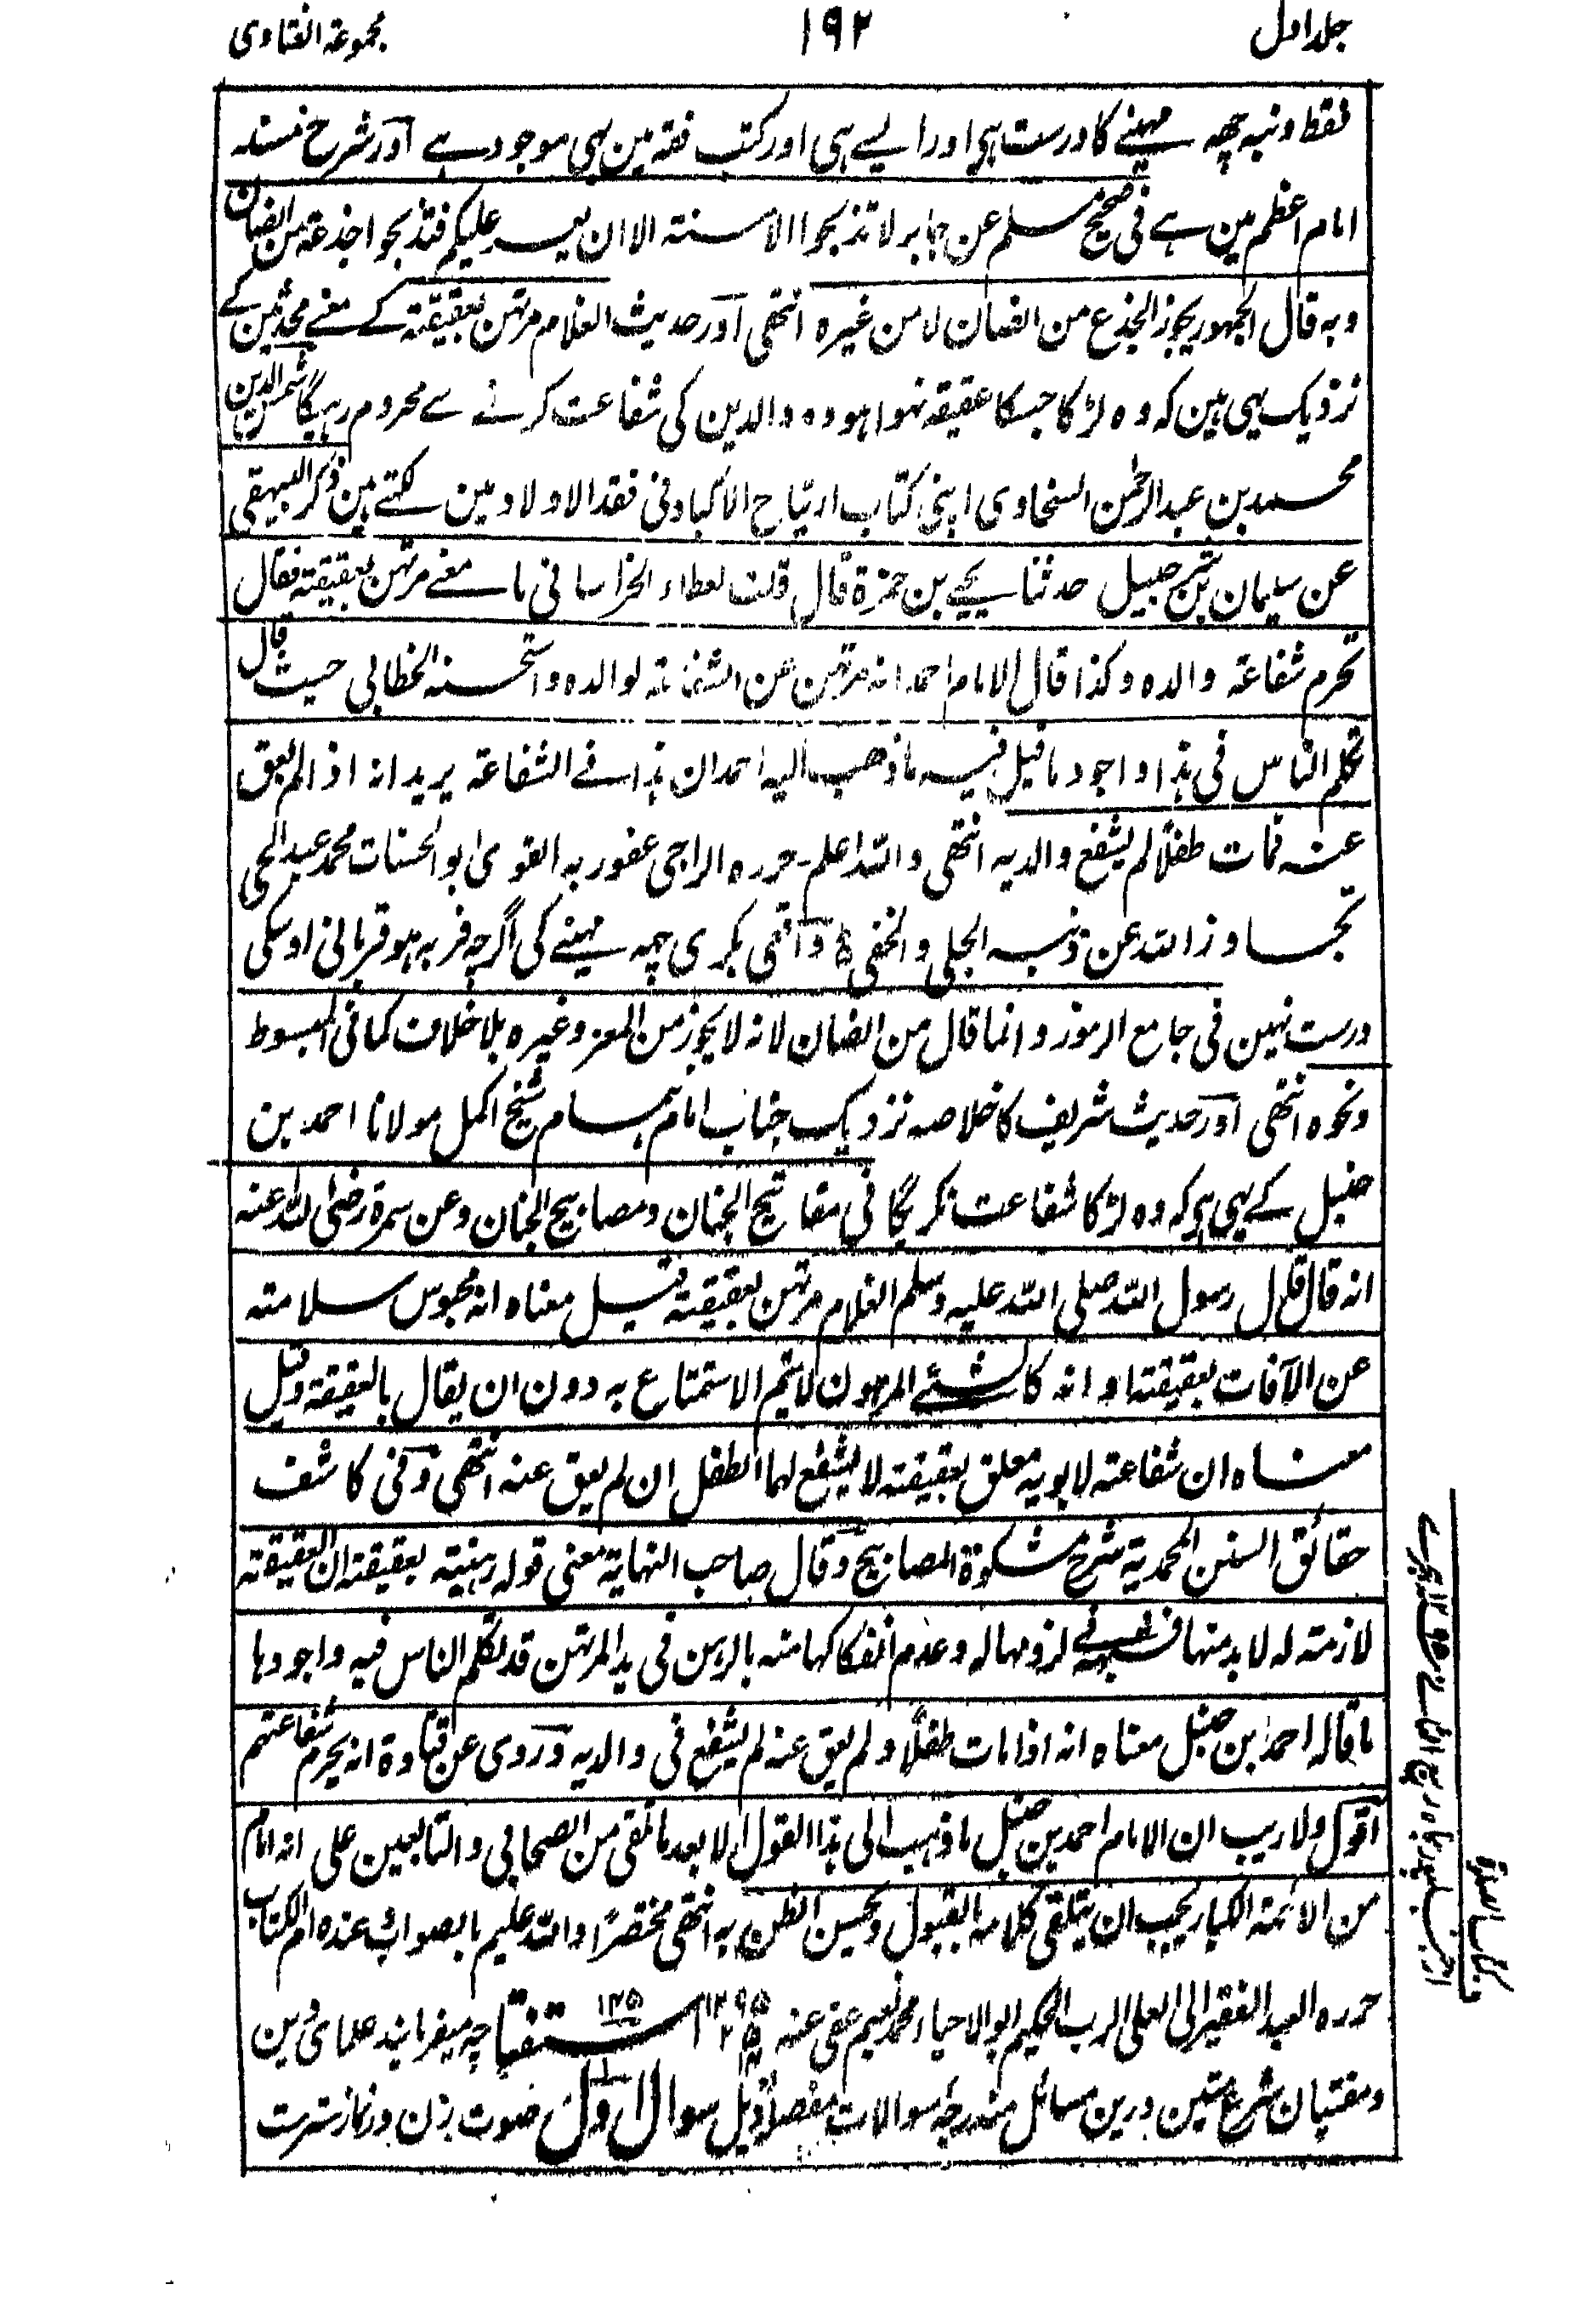 جلد اول
۱۹۲
مجموعة الفتاوی
فقط دنبہ چھہ مہینے کا درست ہی اور ایسے ہی اور کتب فقہ مین بہی موجود ہے اور شرح مسند
امام اعظم مین ہے فی صحیح مسلم عن جابر لا تذبحوا الا مسنة الا ان یعسر علیکم فتذبحوا جذعة من الضان
وبہ قال الجمہور یجوز الجذع من الضان لا من غیرہ انتہی اور حدیث الغلام مرتہن بعقیقتہ کے معنے محدثین کے
نزدیک یہی ہین کہ وہ لڑکا جسکا عقیقہ نہوا ہو وہ والدین کی شفاعت کرنے سے محروم رہیگا شمس الدین
محمد بن عبدالرحمن السخاوی اپنی کتاب ارتیاح الاکباد فی فقد الاولاد مین لکہتے ہین ذکر البیہقی
عن سلیمان بن شرحبیل حدثنا یحیی بن حمزة قال قلت لعطاء الخراسانی ما معنے مرتہن بعقیقتہ فقال
تحرم شفاعة والدہ وکذا قال الامام احمد انہ مرتہن عن الشفاعة لوالدہ واستحسنہ الخطابی حیث قال
تکلم الناس فی ہذا واجود ما قیل فیہ ما ذہب الیہ احمد ان ہذا فے الشفاعة یرید انہ اذا لم یعق
عنہ فمات طفلاً لم یشفع والدیہ انتہی واللہ اعلم۔ حررہ الراجی عفو ربہ القوی ابو الحسنات محمد عبد الحی
تجاوز اللہ عن ذنبہ الجلی والخفی واقعی بکری چہہ مہینے کی اگرچہ فربہ ہو قربانی اوسکی
درست نہین فی جامع الرموز وانما قال من الضان لانہ لا یجوز من المعز وغیرہ بلا خلاف کما فی المبسوط
ونحوہ انتہی اور حدیث شریف کا خلاصہ نزدیک جناب امام ہمام شیخ اکمل مولانا احمد بن
حنبل کے یہی ہے کہ وہ لڑکا شفاعت نکریگا فی مفاتیح الجنان ومصابیح الجنان وعن سمرة رضی اللہ عنہ
انہ قال قال رسول اللہ صلی اللہ علیہ وسلم الغلام مرتہن بعقیقتہ قیل معناہ انہ محبوس سلامتہ
عن الآفات بعقیقتہ او انہ کالشئے المرہون لا یتم الاستمتاع بہ دون ان یقال بالعقیقة وقیل
معناہ ان شفاعتہ لابویہ معلق بعقیقتہ لا یشفع لہما الطفل ان لم یعق عنہ انتہی وفی کاشف
حقائق السنن المحمدیة شرح مشکوة المصابیح وقال صاحب النہایة معنی قولہ رہینة بعقیقتہ ان العقیقة
لازمة لہ لا بد منہا فشبہہ فے لزومہا لہ وعدم انفکاکہا منہ بالرہن فی ید المرتہن قد تکلم الناس فیہ واجودہا
ما قالہ احمد بن حنبل معناہ انہ اذا مات طفلاً ولم یعق عنہ لم یشفع فی والدیہ وروی عن قتادة انہ یحرم شفاعتہم
اقول ولا ریب ان الامام احمد بن حنبل ما ذہب الی ہذا القول الا بعد ما تلقی من الصحابی والتابعین علی انہ امام
من الائمة الکبار یجب ان یتلقی کلامہ بالقبول ویحسن الظن بہ انتہی مختصراً واللہ علیم بالصواب عندہ ام الکتاب
حررہ العبد الفقیر الی العلی الرب الحکیم ابو الاحیاء محمد نعیم عفی عنہ استفتا چہ میفرمایند علمای دین
ومفتیان شرع متین درین مسائل مندرجہ سوالات مفصلہ ذیل سوال اول صوت زن در نماز سترست